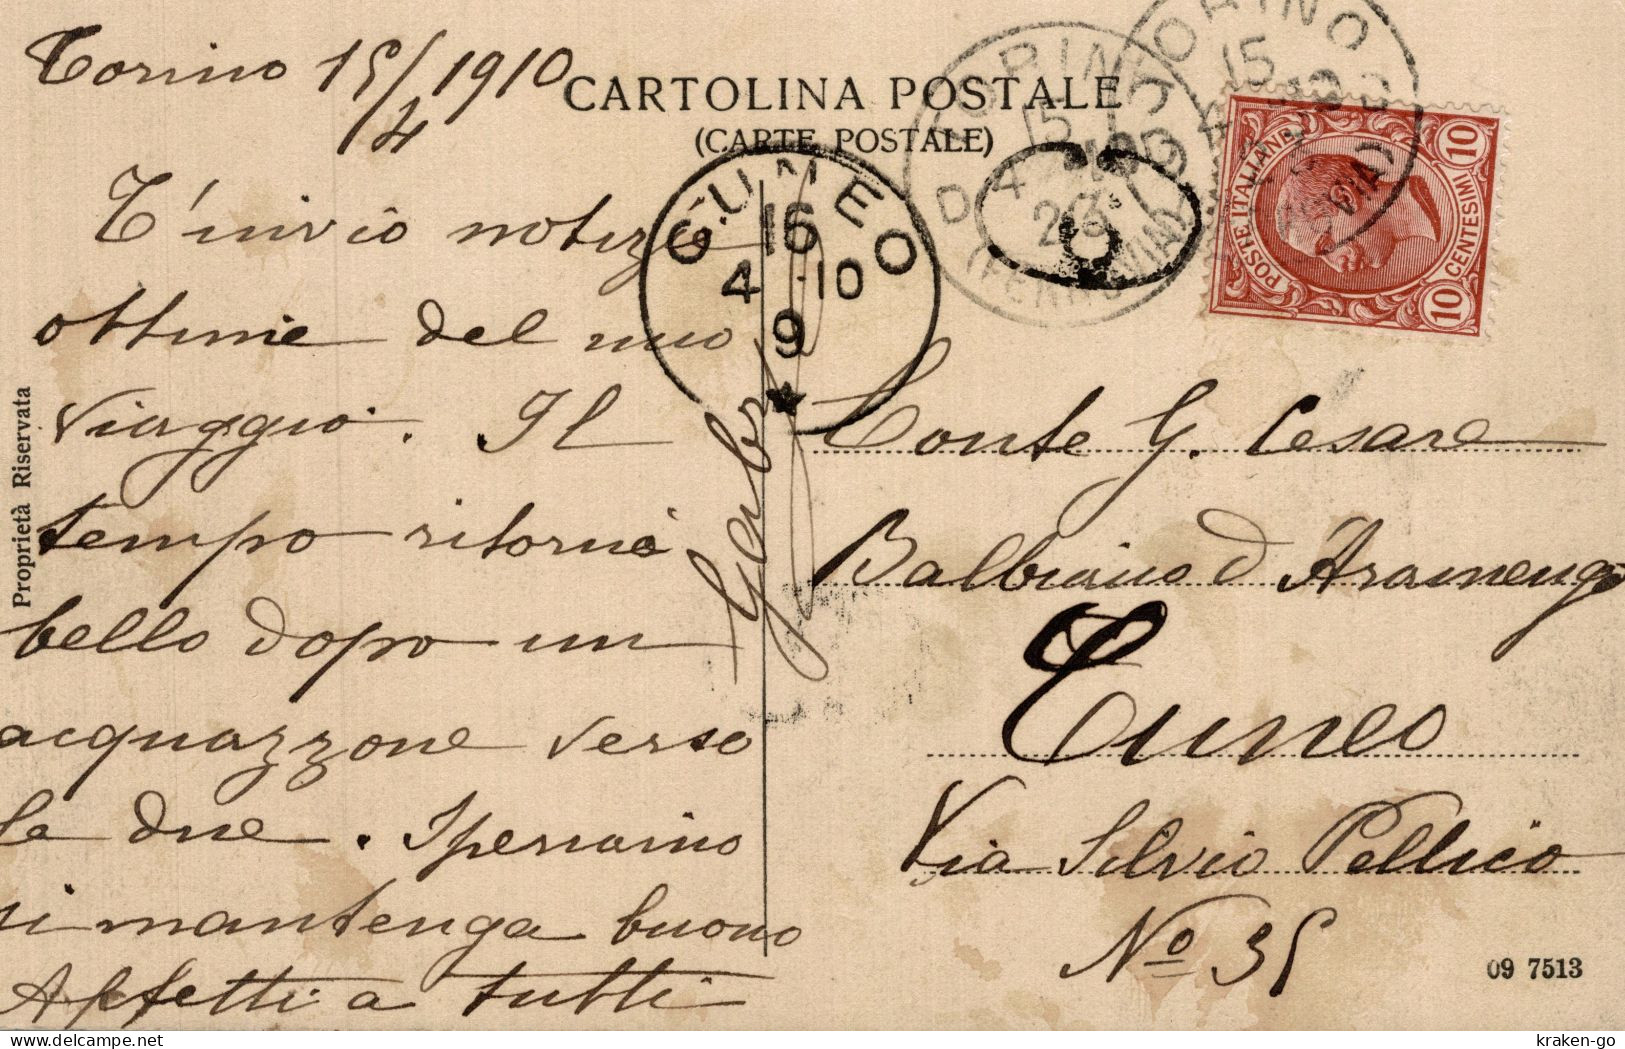 Torino 15/4 1910
CARTOLINA POSTALE
(CARTE POSTALE)
T'invio notizie
ottime del mio
viaggio. Il
tempo ritornò
bello dopo un
acquazzone verso
le due. Speriamo
si mantenga buono
Affetti a tutti
Gab
Proprietà Riservata
CUNEO
16
4 · 10
9
TORINO
15
4
23
(FERROVIA)
TORINO
15
POSTE ITALIANE
10 CENTESIMI 10
Conte G. Cesare
Balbiano d'Aramengo
Cuneo
Via Silvio Pellico
No 35
09 7513
kraken-go
delcampe.net